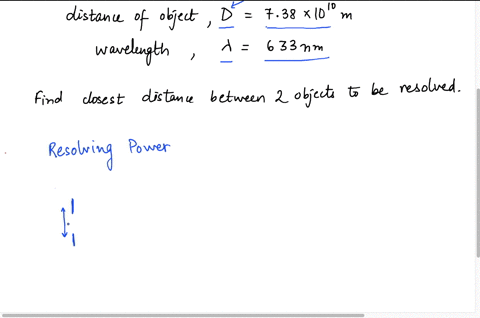 distance of object, D = 7.38 × 10¹⁰ m
wavelength, λ = 633 nm
Find closest distance between 2 objects to be resolved.
Resolving Power